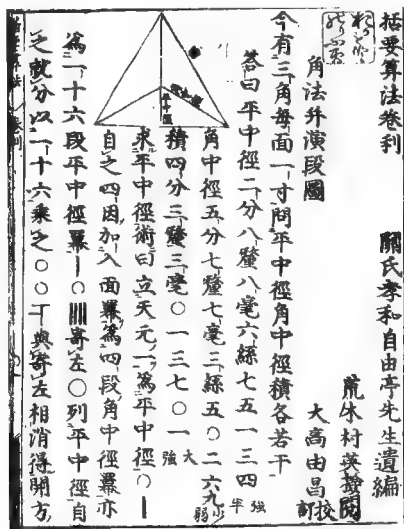 括要算法卷利
關氏孝和自由亭先生遺編
荒木村英撿閱
大高由昌校訂
角法幷演段圖
今有三角每面一寸問平中徑角中徑積各若干
答曰平中徑二分八釐八毫六絲七五一三四強半
角中徑五分七釐七毫三絲五〇二六九少弱
積四分三釐三毫〇一三七〇一大強
求平中徑術曰立天元一爲平中徑〇|
自之四因加入面冪爲四段角中徑冪亦
爲一十六段平中徑冪|〇||||寄左〇列平中徑自
之就分以一十六乘之〇〇丅與寄左相消得開方
角中徑
平中徑